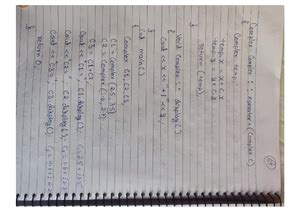 Complex Complex :: operator+(Complex c)
{
Complex temp;
temp.x = x + c.x;
temp.y = y + c.y;
return (temp);
}
Void Complex :: display()
{
Cout << x << "+j" << y;
}
int main()
{
Complex C1, C2, C3;
C1 = Complex (2.5, 3.5);
C2 = Complex (1.6, 2.7);
C3 = C1 + C2;
Cout << C1 = ; C1.display();
Cout << C2 = ; C2.display();
Cout << C3 = ; C3.display();
return 0;
}